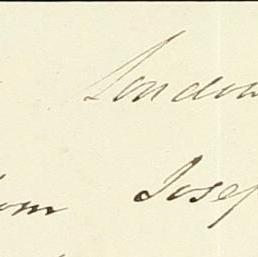 London
om Josep